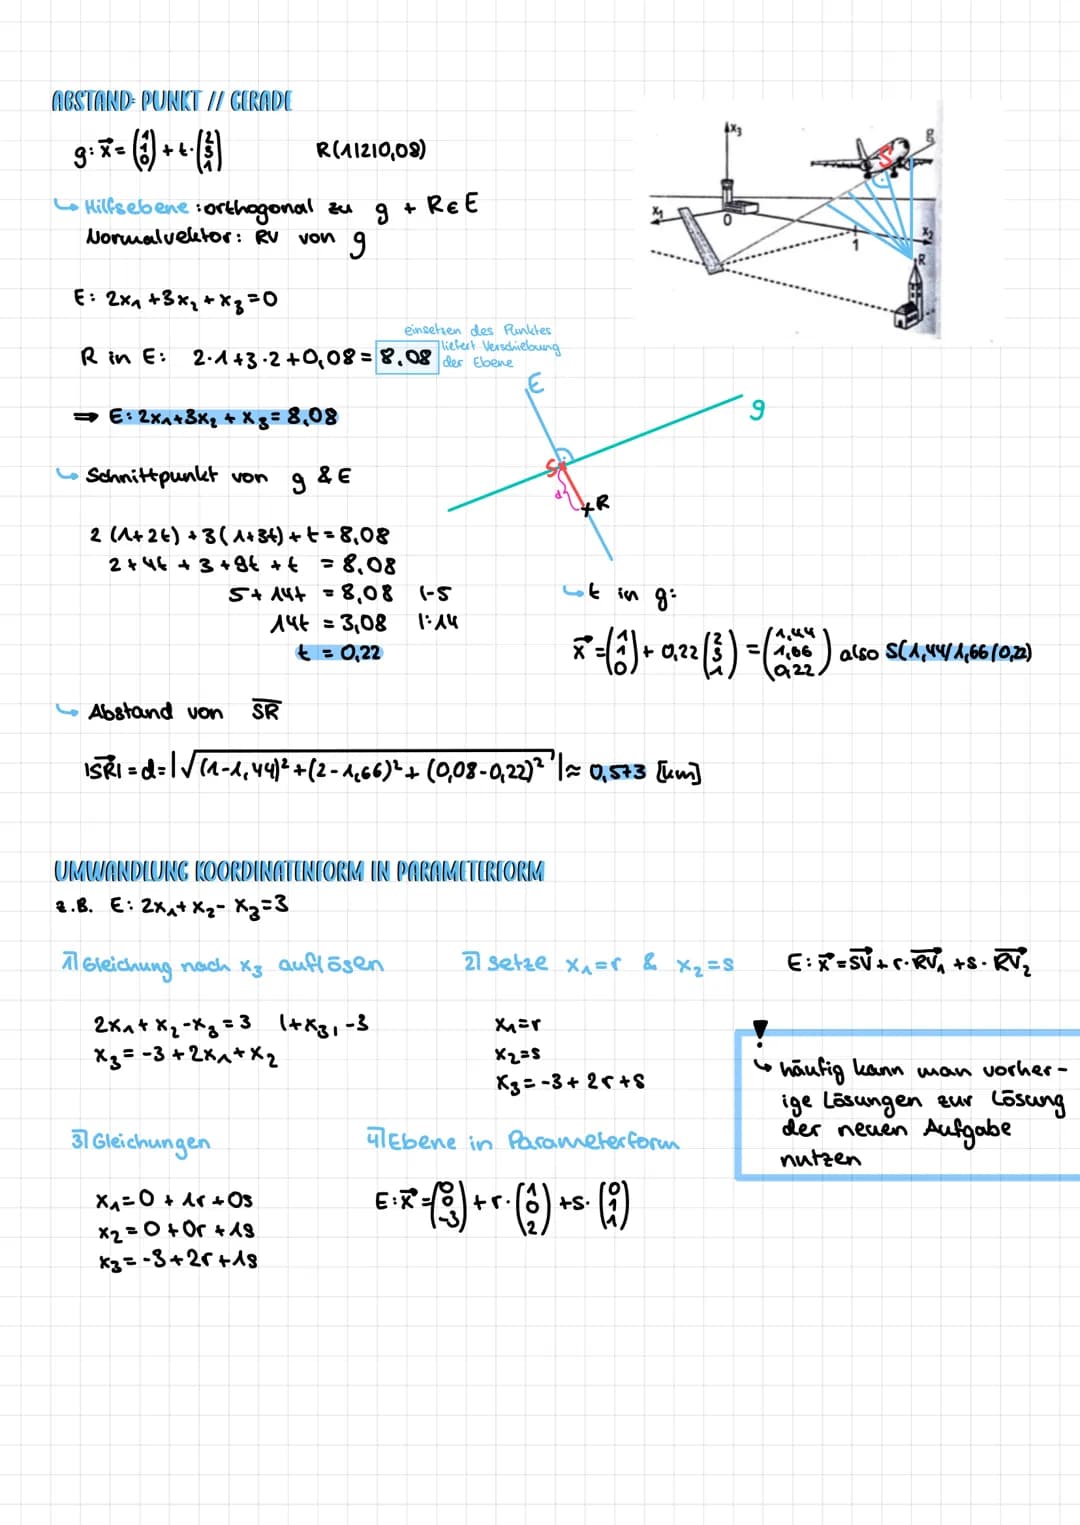 ABSTAND: PUNKT // GERADE
g: x⃗ = (1 1 0) + t · (2 3 1)
R(1|2|0,08)
↳ Hilfsebene: orthogonal zu g + R∈E
Normalvektor: RV von g
E: 2x₁ + 3x₂ + x₃ = 0
einsetzen des Punktes
liefert Verschiebung
der Ebene
R in E: 2·1 + 3·2 + 0,08 = 8.08
⇒ E: 2x₁ + 3x₂ + x₃ = 8,08
↳ Schnittpunkt von g & E
2 (1+2t) + 3(1+3t) + t = 8,08
2 + 4t + 3 + 9t + t = 8,08
5 + 14t = 8,08 |-5
14t = 3,08 |:14
t = 0,22
x₃
g
S
x₁
0
1
x₂
R
E
g
S
d
R
↳ t in g:
x⃗ = (1 1 0) + 0,22 (2 3 1) = (1,44 1,66 0,22) also S(1,44/1,66/0,22)
↳ Abstand von SR
|SR| = d = |√(1-1,44)² + (2-1,66)² + (0,08-0,22)²| ≈ 0,573 [km]
UMWANDLUNG KOORDINATENFORM IN PARAMETERFORM
z.B. E: 2x₁ + x₂ - x₃ = 3
1) Gleichung nach x₃ auflösen
2x₁ + x₂ - x₃ = 3 |+x₃, -3
x₃ = -3 + 2x₁ + x₂
2) setze x₁=r & x₂=s
x₁=r
x₂=s
x₃ = -3 + 2r + s
E: x⃗ = SV + r · RV₁ + s · RV₂
!
↳ häufig kann man vorher-
ige Lösungen zur Lösung
der neuen Aufgabe
nutzen
3) Gleichungen
x₁ = 0 + 1r + 0s
x₂ = 0 + 0r + 1s
x₃ = -3 + 2r + 1s
4) Ebene in Parameterform
E: x⃗ = (0 0 -3) + r · (1 0 2) + s · (0 1 1)